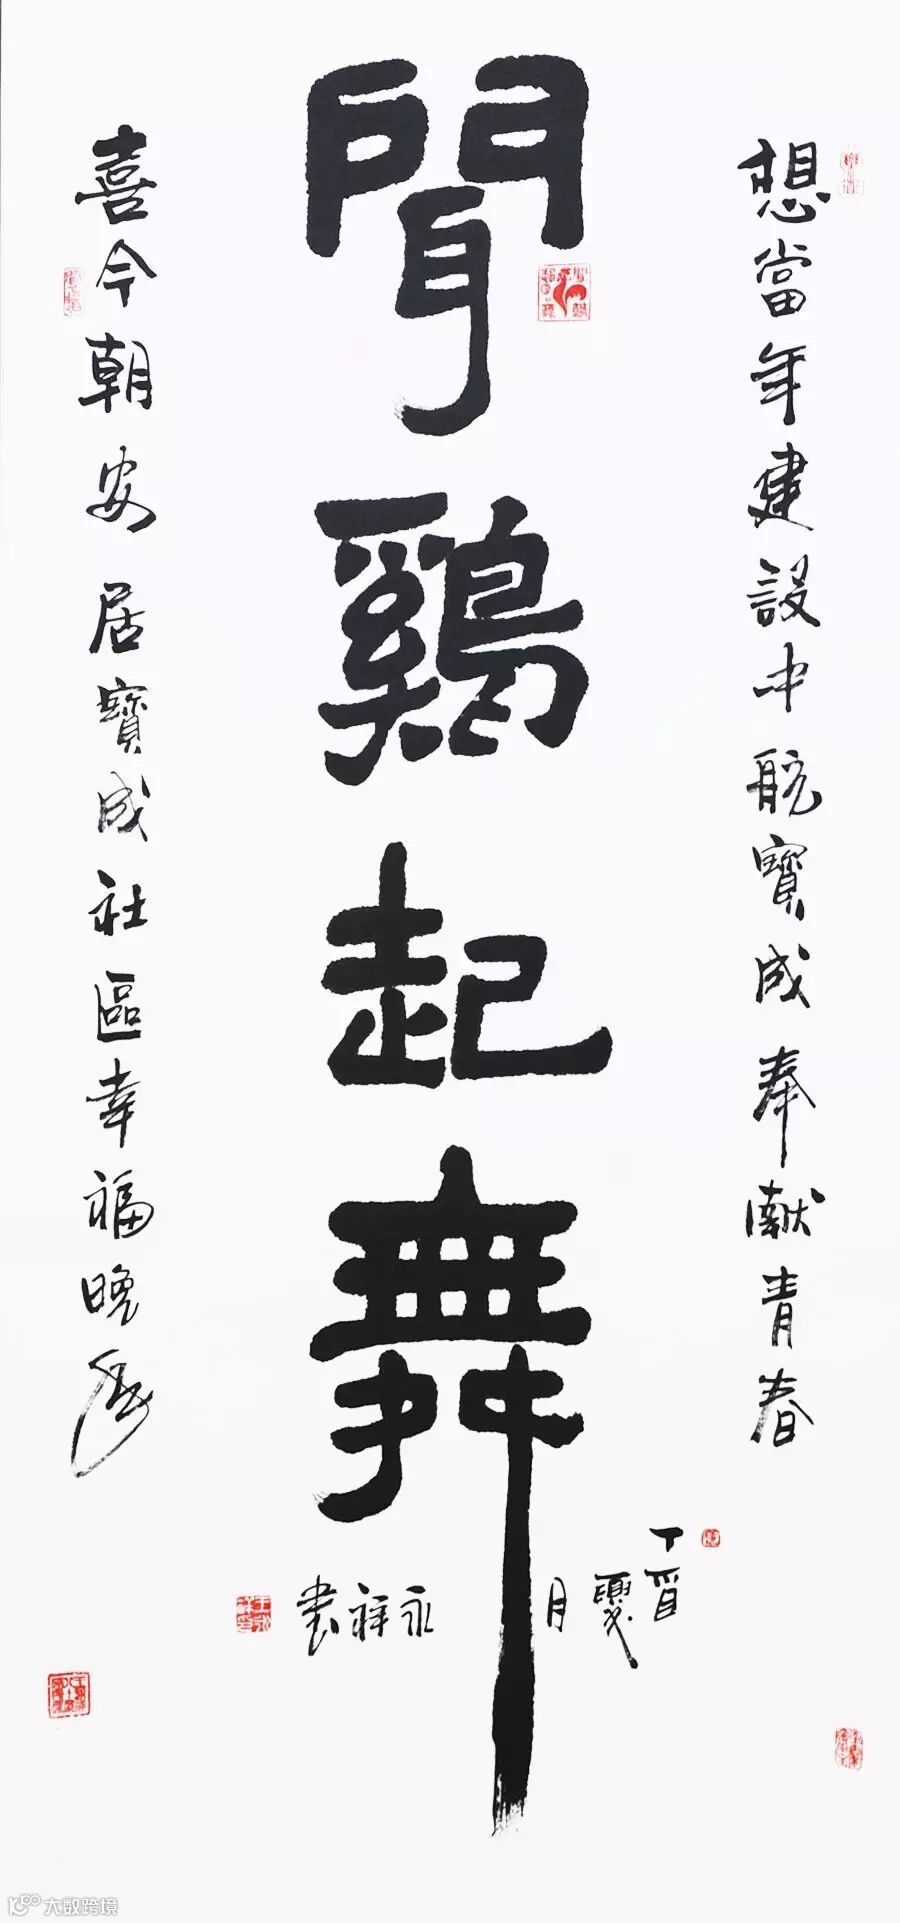 想當年建設中航寶成奉獻青春
聞鷄起舞
喜今朝安居寶成社區幸福晚年
丁酉夏月永祥書
大数跨境